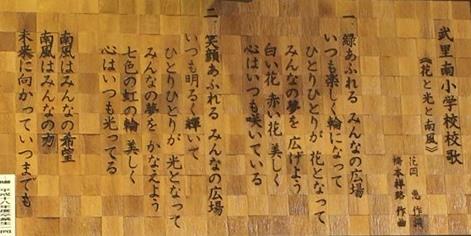 武里南小学校校歌
《花と光と南風》
花岡 恵 作詞
橋本祥路 作曲
一、緑あふれる みんなの広場
いつも楽しく 輪になって
ひとりひとりが 花となって
みんなの夢を 広げよう
白い花 赤い花 美しく
心はいつも 咲いている
二、笑顔あふれる みんなの広場
いつも明るく 輝いて
ひとりひとりが 光となって
みんなの夢を かなえよう
七色の虹の輪 美しく
心はいつも 光ってる
南風はみんなの希望
南風はみんなの力
未来に向かっていつまでも
平成十八年度卒業生一同